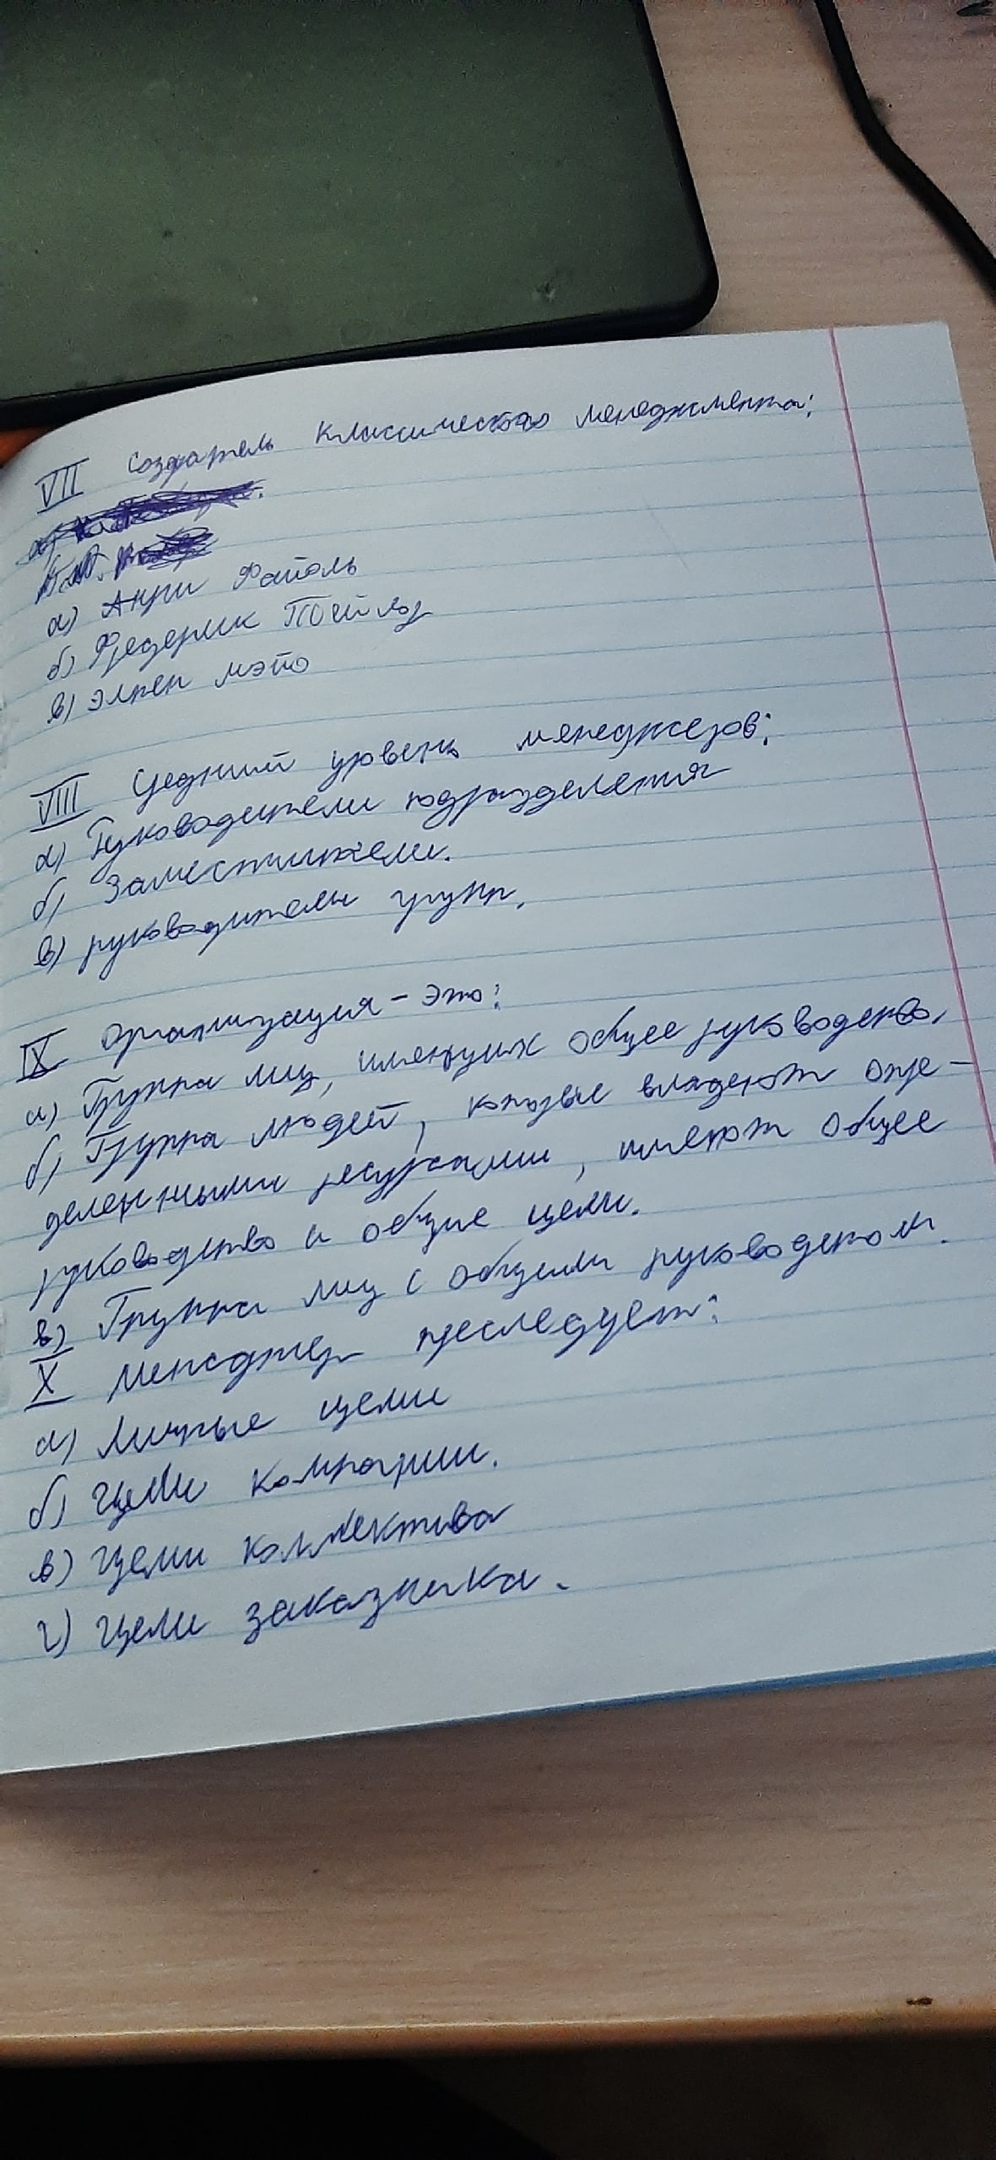 VII Создатель классического менеджмента:
а) Анри Файоль
б) Фредерик Тейлор
в) Элтен мэйо
VIII Средний уровень менеджеров:
а) Руководители подразделения
б) Заместители.
в) руководители групп.
IX Организация - это:
а) Группа лиц, имеющих общее руководство.
б) Группа людей, которые владеют опре-
деленными ресурсами, имеют общее
руководство и общие цели.
в) Группа лиц с общим руководством.
X Менеджер преследует:
а) Личные цели
б) Цели компании.
в) Цели коллектива
г) Цели заказчика.